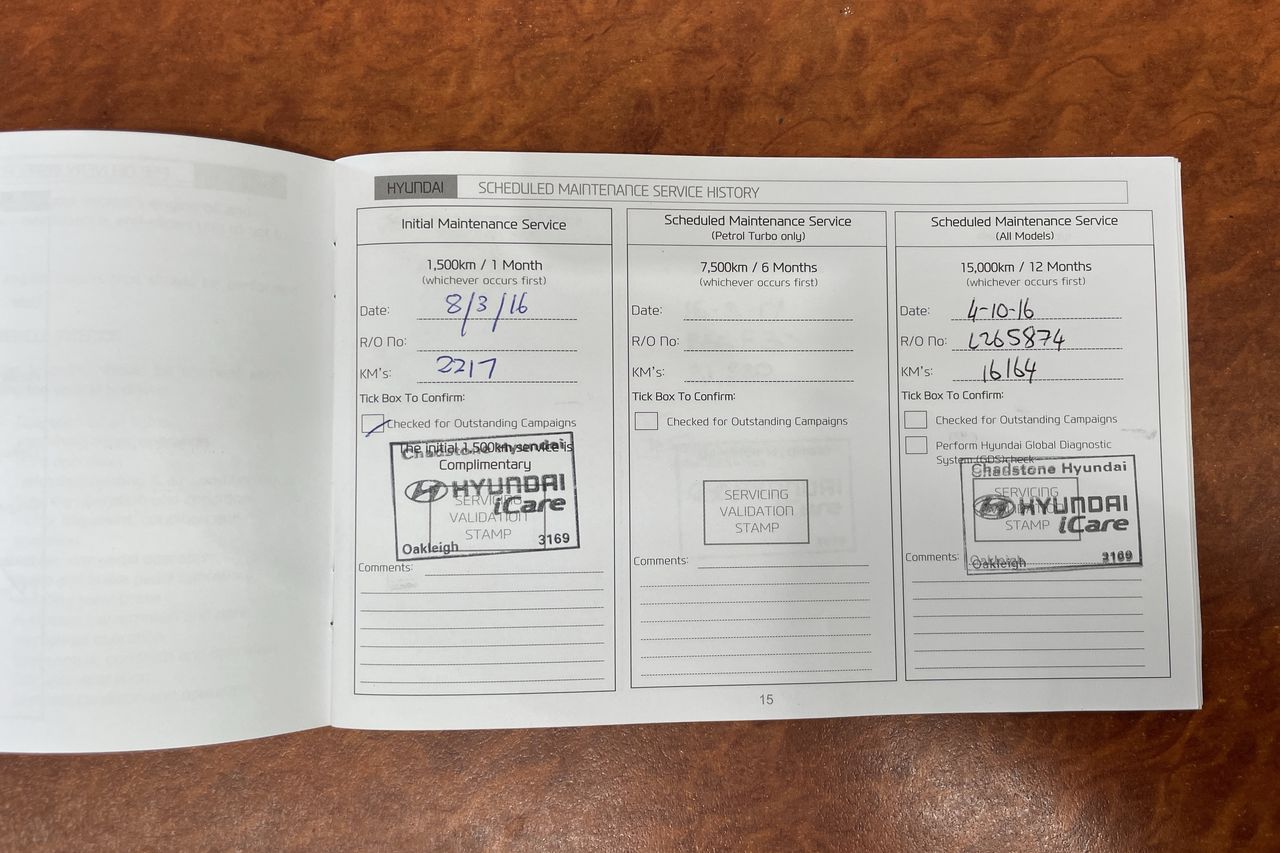 HYUNDAI SCHEDULED MAINTENANCE SERVICE HISTORY
Initial Maintenance Service
1,500km / 1 Month
(whichever occurs first)
Date: 8/3/16
R/O No:
KM's: 2217
Tick Box To Confirm:
Checked for Outstanding Campaigns
The initial 1,500km service is
Complimentary
Chadstone Hyundai
HYUNDAI
iCare
SERVICING
VALIDATION
STAMP
Oakleigh 3169
Comments:
Scheduled Maintenance Service
(Petrol Turbo only)
7,500km / 6 Months
(whichever occurs first)
Date:
R/O No:
KM's:
Tick Box To Confirm:
Checked for Outstanding Campaigns
SERVICING
VALIDATION
STAMP
Comments:
Scheduled Maintenance Service
(All Models)
15,000km / 12 Months
(whichever occurs first)
Date: 4-10-16
R/O No: L265874
KM's: 16164
Tick Box To Confirm:
Checked for Outstanding Campaigns
Perform Hyundai Global Diagnostic
System (GDS) check
Chadstone Hyundai
SERVICING
HYUNDAI
iCare
STAMP
Oakleigh 3169
Comments:
15